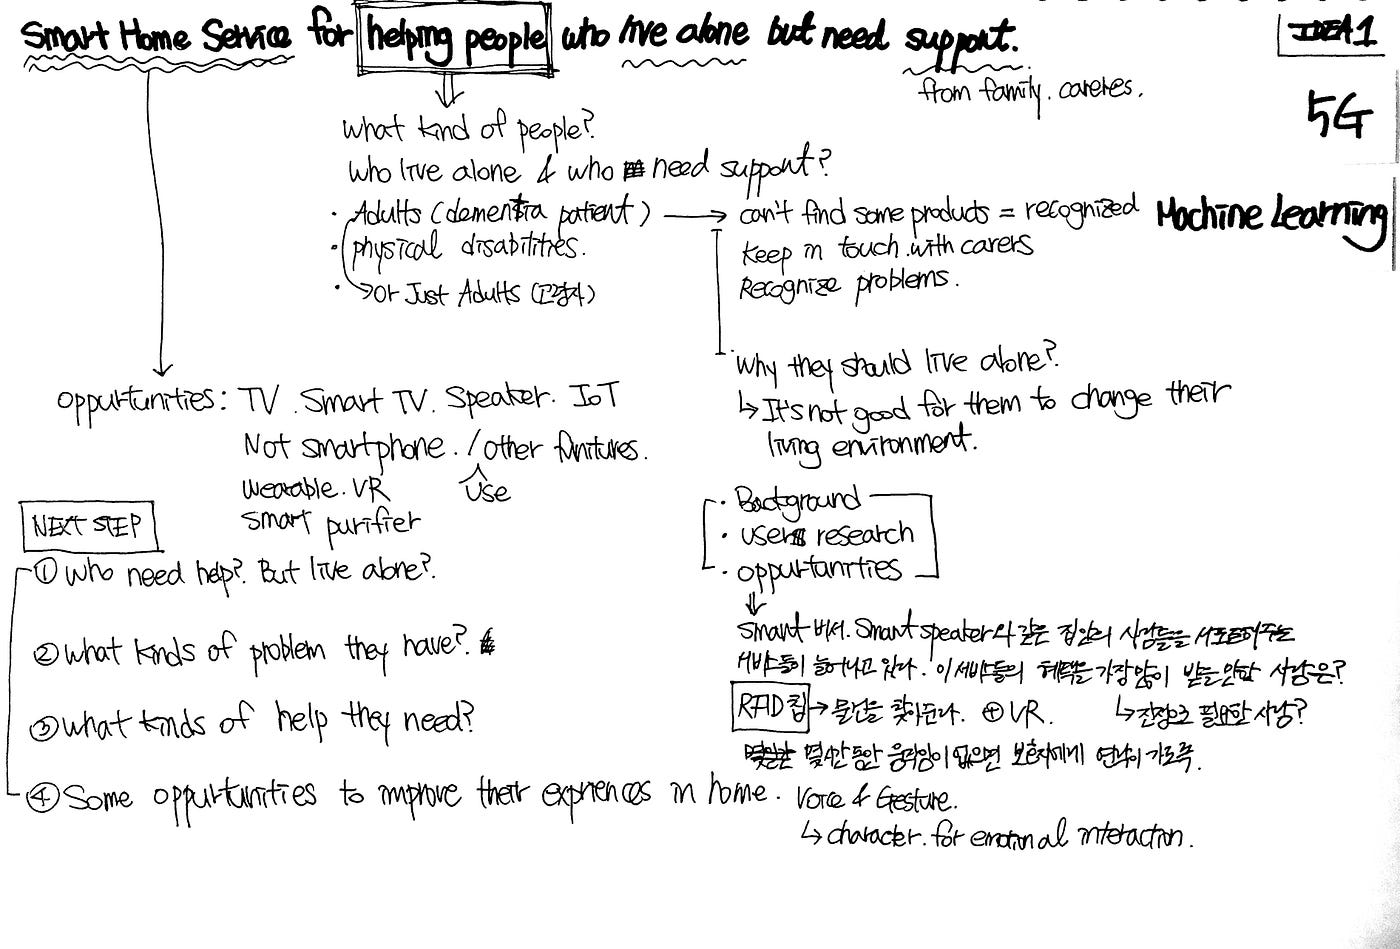 Smart Home Service for helping people who live alone but need support.
IDEA1
from family. careres.
5G
what kind of people?
who live alone & who need support?
· Adults (dementia patient) → can't find some products = recognized
Machine Learning
· physical disabilities.
keep in touch.with carers
Recognize problems.
· → or Just Adults (고령자)
why they should live alone?
↳ It's not good for them to change their
living environment.
oppurtunities: TV . Smart TV. Speaker. IoT
Not smartphone. / other funitures.
use
wearable. VR
smart purifier
NEXT STEP
① who need help? But live alone?.
② what kinds of problem they have?.
③ what kinds of help they need?
④ Some oppurtunities to improve their expriences in home.
· Background
· users research
· oppurtunities
smart 비서. Smart speaker와 같은 집안의 사람들을 서포트해주는
서비스들이 늘어나고 있다. 이 서비스들의 혜택을 가장많이 받을만한 사람은?
RFID칩 → 물건을 찾아준다. ⊕ VR.
↳ 진정으로 필요한 사람?
몇시간동안 움직임이 없으면 보호자에게 연락이 가도록.
Voice & Gesture.
↳ character. for emotional interaction.